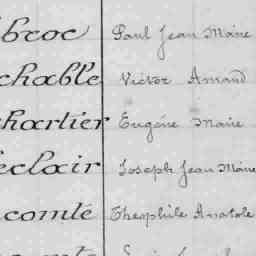 broc Paul Jean Marie
chable Victor Amand
chartier Eugène Marie
éclair Joseph Jean Marie
comte Théophile Anatole